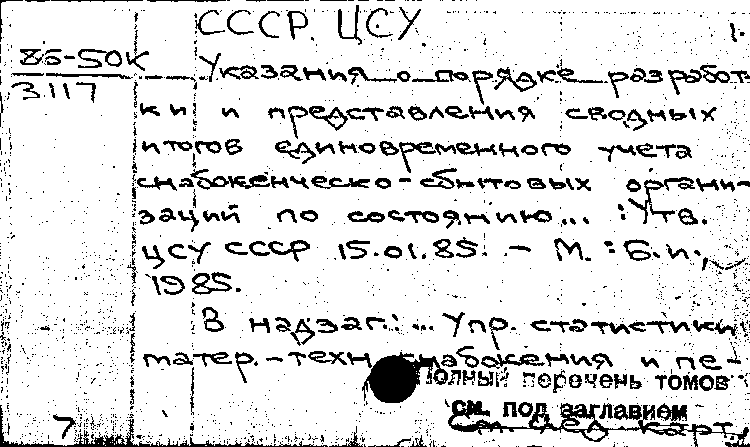 СССР. ЦСУ
1.
86-50К
3117
Указания о порядке разработ-
ки и представления сводных
итогов единовременного учета
снабженческо-сбытовых органи-
заций по состоянию... : Утв.
ЦСУ СССР 15.01.85. - М. : Б.и.,
1985.
В надзаг.: ... Упр. статистики
матер.-техн. снабжения и пе-
Полный перечень томов
см. под заглавием
См. след. карт.
7